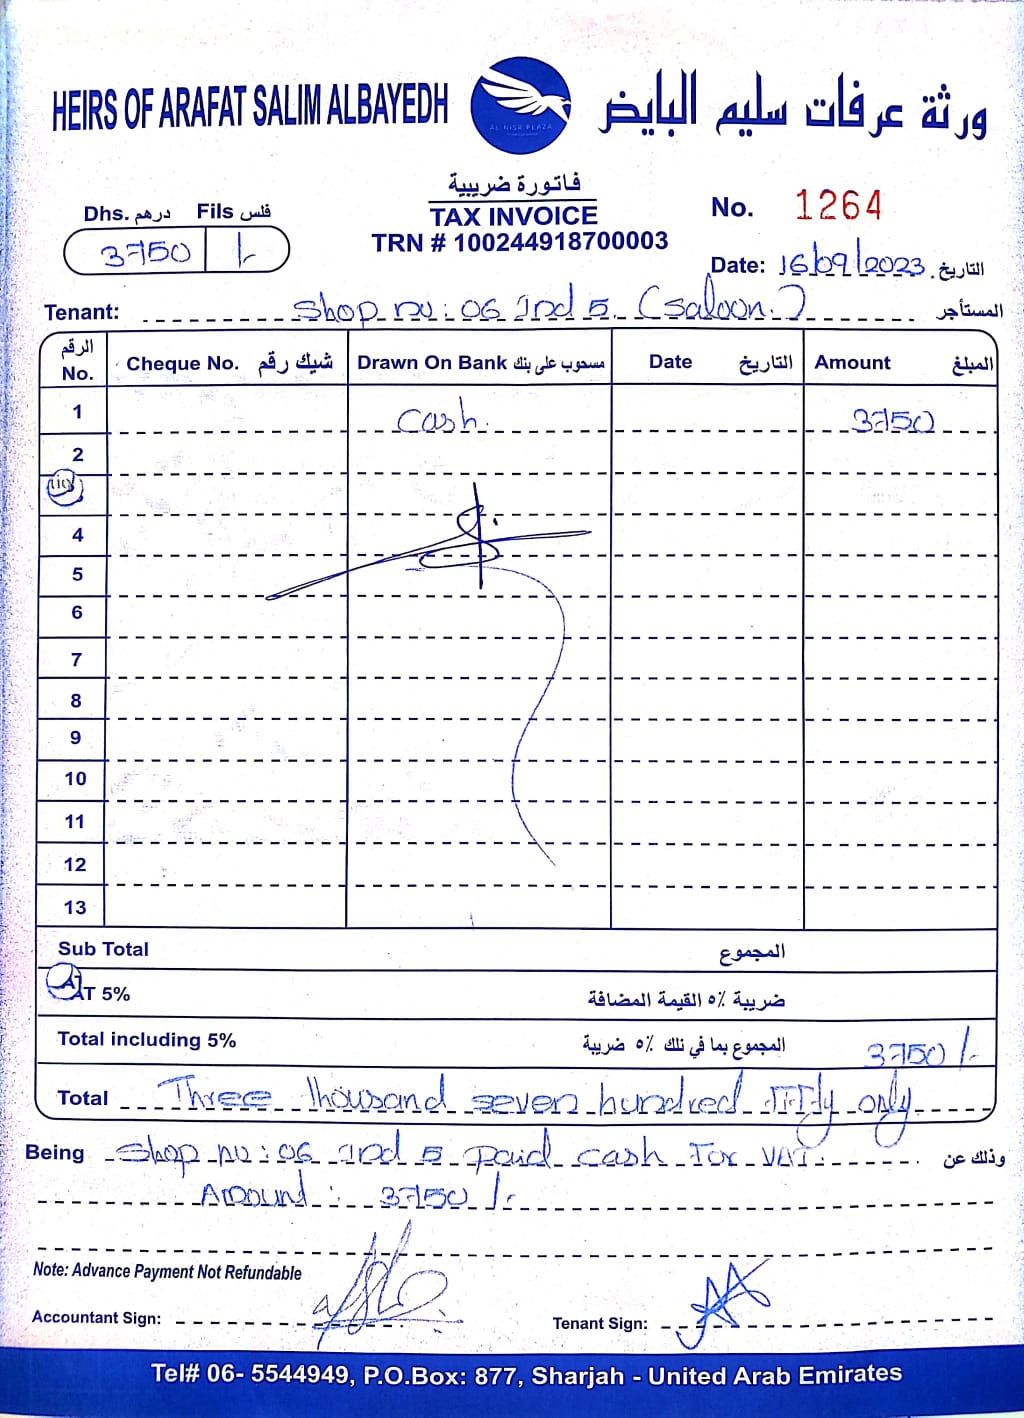 HEIRS OF ARAFAT SALIM ALBAYEDH
ورثة عرفات سليم البايض
AL NISR PLAZA
فاتورة ضريبية
TAX INVOICE
TRN # 100244918700003
Dhs. درهم Fils فلس
3750 /-
No. 1264
Date: 16/09/2023 التاريخ
Tenant: Shop no: 06 Ind 5 (Saloon) المستأجر
الرقم No. Cheque No. شيك رقم Drawn On Bank مسحوب على بنك Date التاريخ Amount المبلغ
1 Cash. 3750
2
4
5
6
7
8
9
10
11
12
13
Sub Total المجموع
AT 5% ضريبة ٥٪ القيمة المضافة
Total including 5% المجموع بما في ذلك ٥٪ ضريبة 3750/-
Total Three thousand seven hundred fifty only
Being Shop no: 06 Ind 5 Paid Cash for VAT. وذلك عن
Amount: 3750/-
Note: Advance Payment Not Refundable
Accountant Sign:
Tenant Sign:
Tel# 06- 5544949, P.O.Box: 877, Sharjah - United Arab Emirates